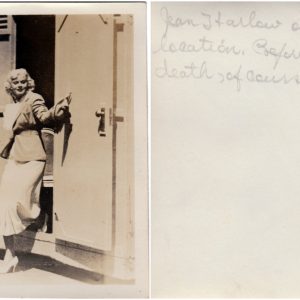 Jean Harlow o
location. Befor
death, of cours